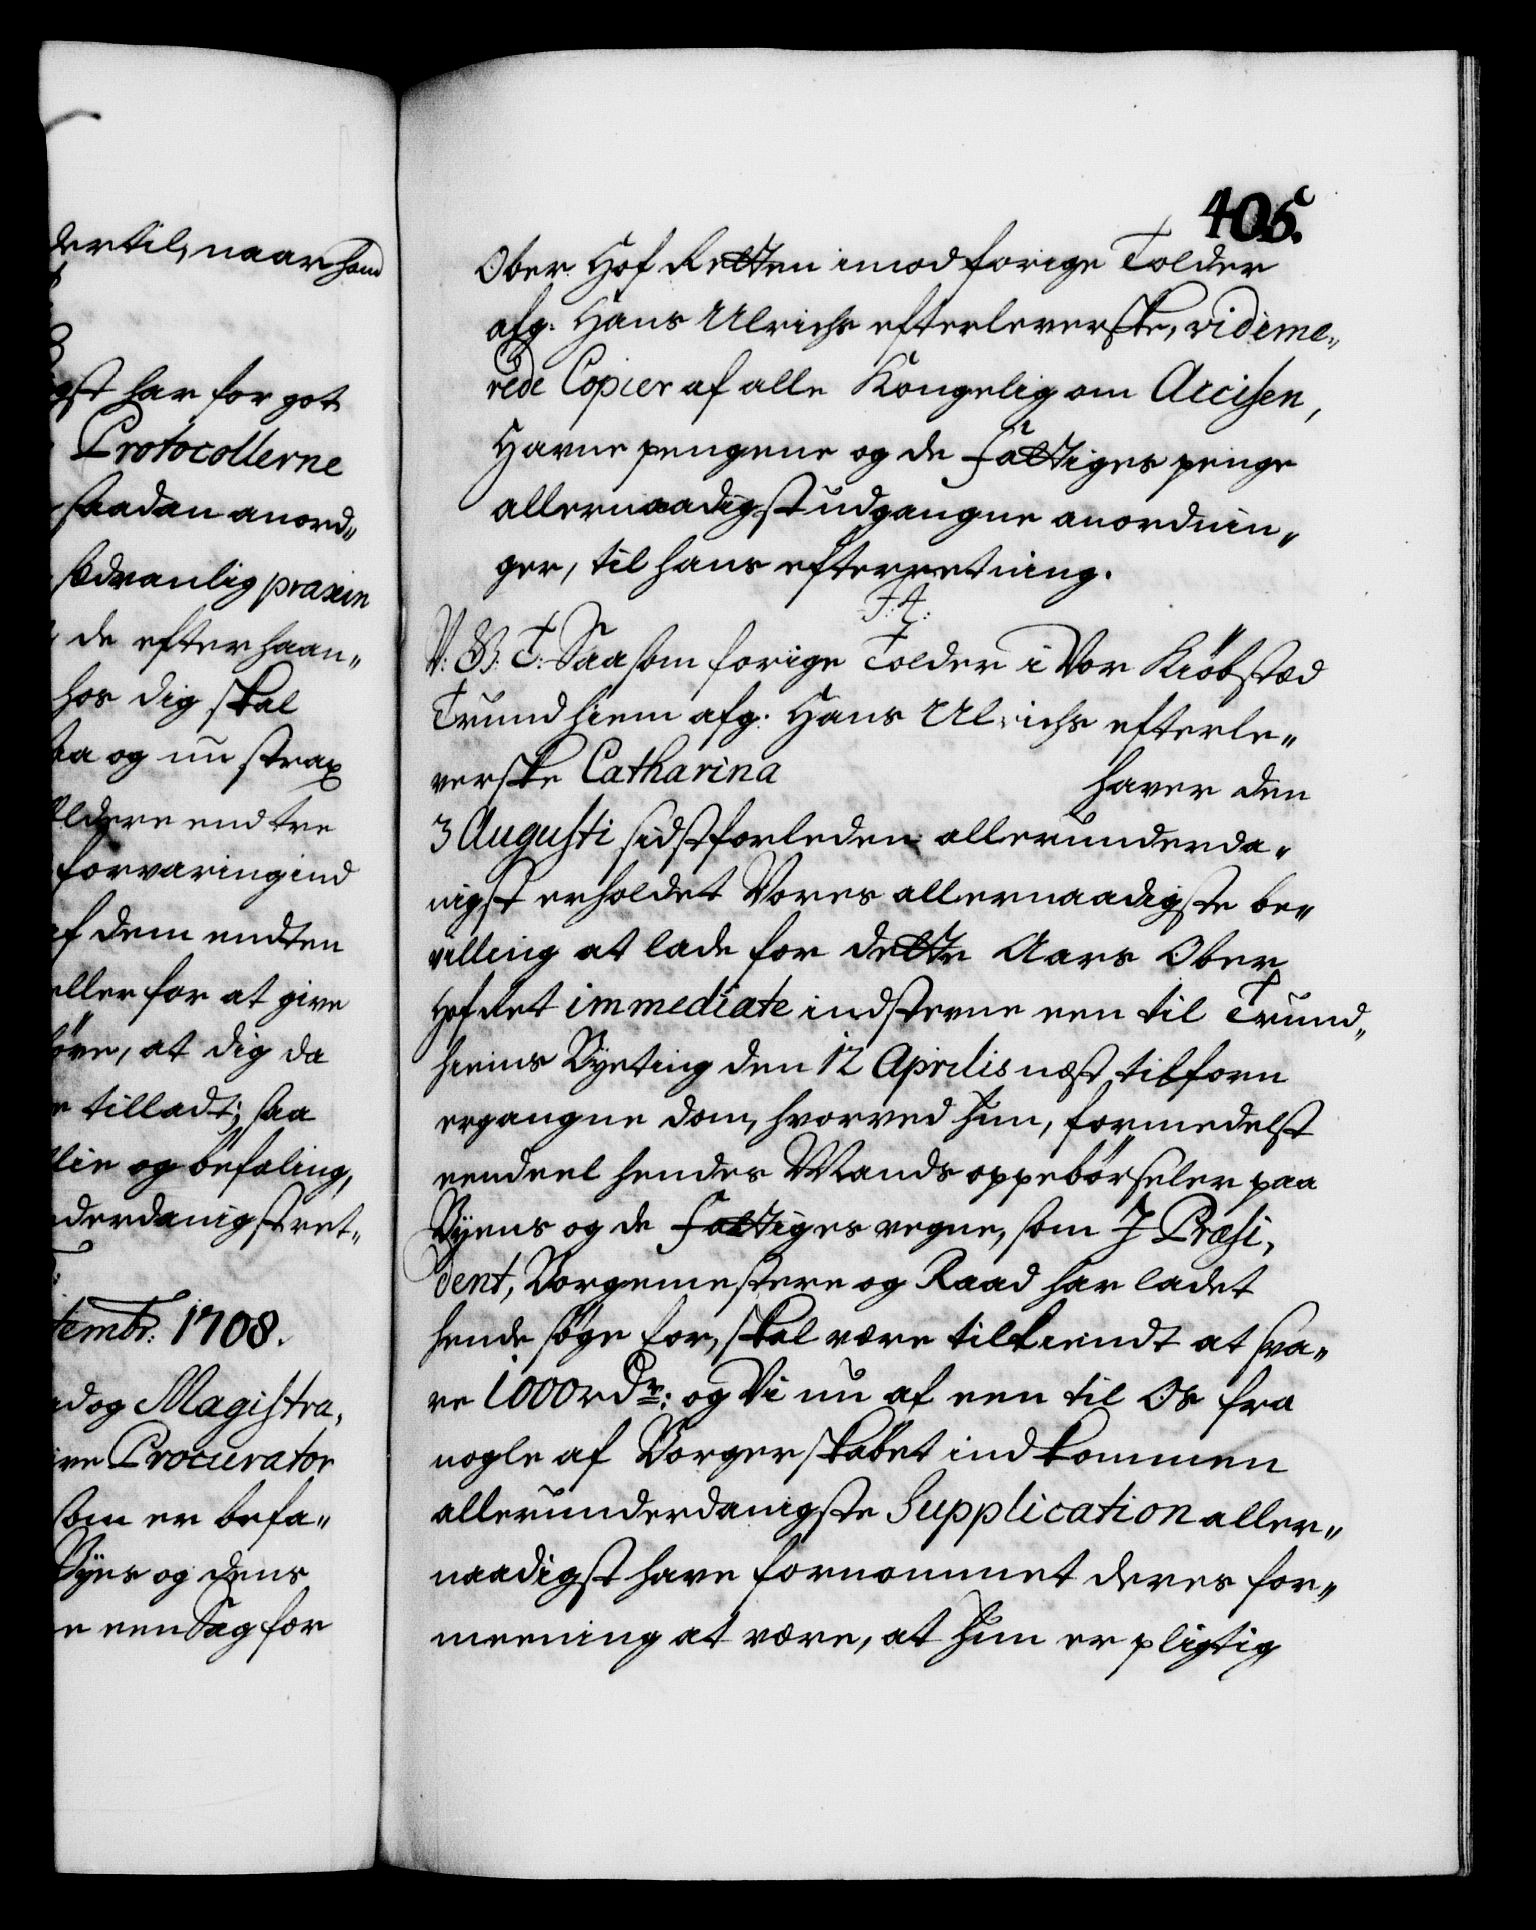 dertil, naar hand
gst har for got
Protocollerne
saadan anord„
sædvanlig praxin
de efterhaan„
hos dig skal
saa og nu strax
Eldere end tre
forvaring ind
af dem endten
eller for at give
høre, at dig da
tilladt; saa
vilie og befaling,
derdanigst ret„
tembr: 1708.
ad og Magistra„
ve Procurator
som er befa„
Byes og dens
een Sag for
405.
Ober Hof Retten imod forige Tolder
afg: Hans Ulrichs efterleverske, vidime„
rede Copier af alle Kongelig om Accisen,
Havne pengene og de fattiges penge
allernaadigst udgangne anordnin„
ger, til hans efterretning.
F: 4.
V: G: T: Saasom forige Tolder i Vor Kiöbstæd
Trundhiem afg: Hans Ulrichs efterle„
verske Catharina haver den
3 Augusti sidstforleden allerunderda„
nigst erholdet Vores allernaadigste be„
villing at lade for dette Aars Ober
Hofret immediate indstevne een til Trund„
hiems Byeting den 12 Aprilis næst tilforn
ergangne dom, hvorved hun, formedelst
eendeel hendes Mands oppebörseler paa
Byens og de fattiges vegne, som I Præsi„
dent, Borgemestere og Raad har ladet
hende søge for, skal være tilkiendt at sva„
re 1000 rdr: og Vi nu af een til Os fra
nogle af Borgerskabet indkommen
allerunderdanigste Supplication aller„
naadigst have fornommet deres for„
meening at være, at hun er pligtig